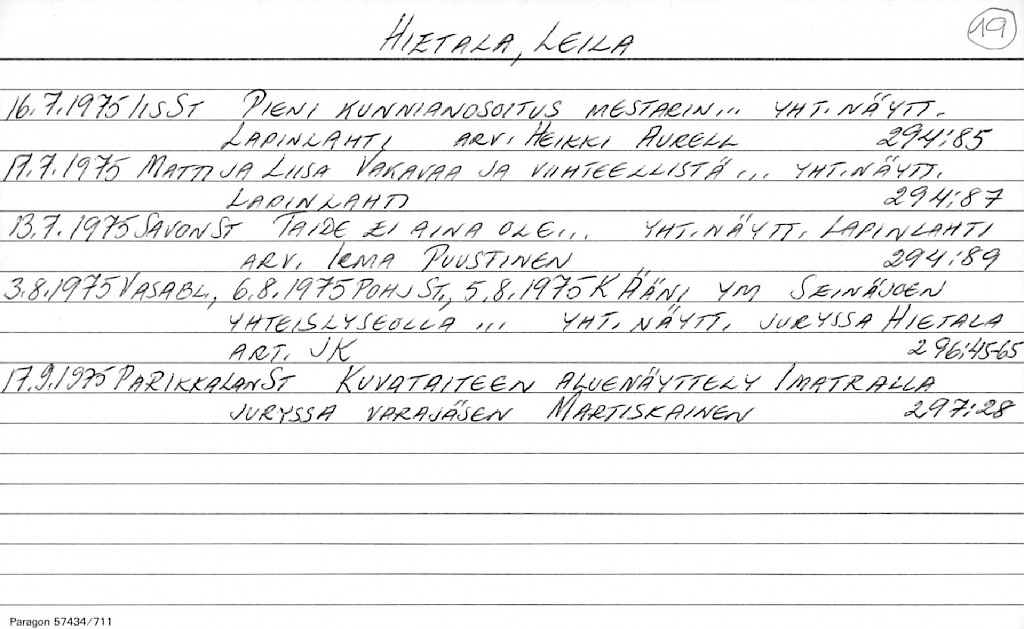 19
HIETALA, LEILA
16.7.1975 IISST PIENI KUNNIANOSOITUS MESTARIN... YHT.NÄYTT.
LAPINLAHTI ARV. HEIKKI AURELL 294:85
17.7.1975 MATTI JA LIISA VAKAVAA JA VIIHTEELLISTÄ... YHT.NÄYTT.
LAPINLAHTI 294:87
13.7.1975 SAVONST TAIDE EI AINA OLE... YHT.NÄYTT. LAPINLAHTI
ARV. IRMA PUUSTINEN 294:89
3.8.1975 VASABL, 6.8.1975 POHJST, 5.8.1975 K ÄÄNI YM SEINÄJOEN
YHTEISLYSEOLLA ... YHT. NÄYTT. JURYSSA HIETALA
ART. JK 296:45-65
17.9.1975 PARIKKALANST KUVATAITEEN ALUENÄYTTELY IMATRALLA
JURYSSA VARAJÄSEN MARTISKAINEN 297:28
Paragon 57434/711